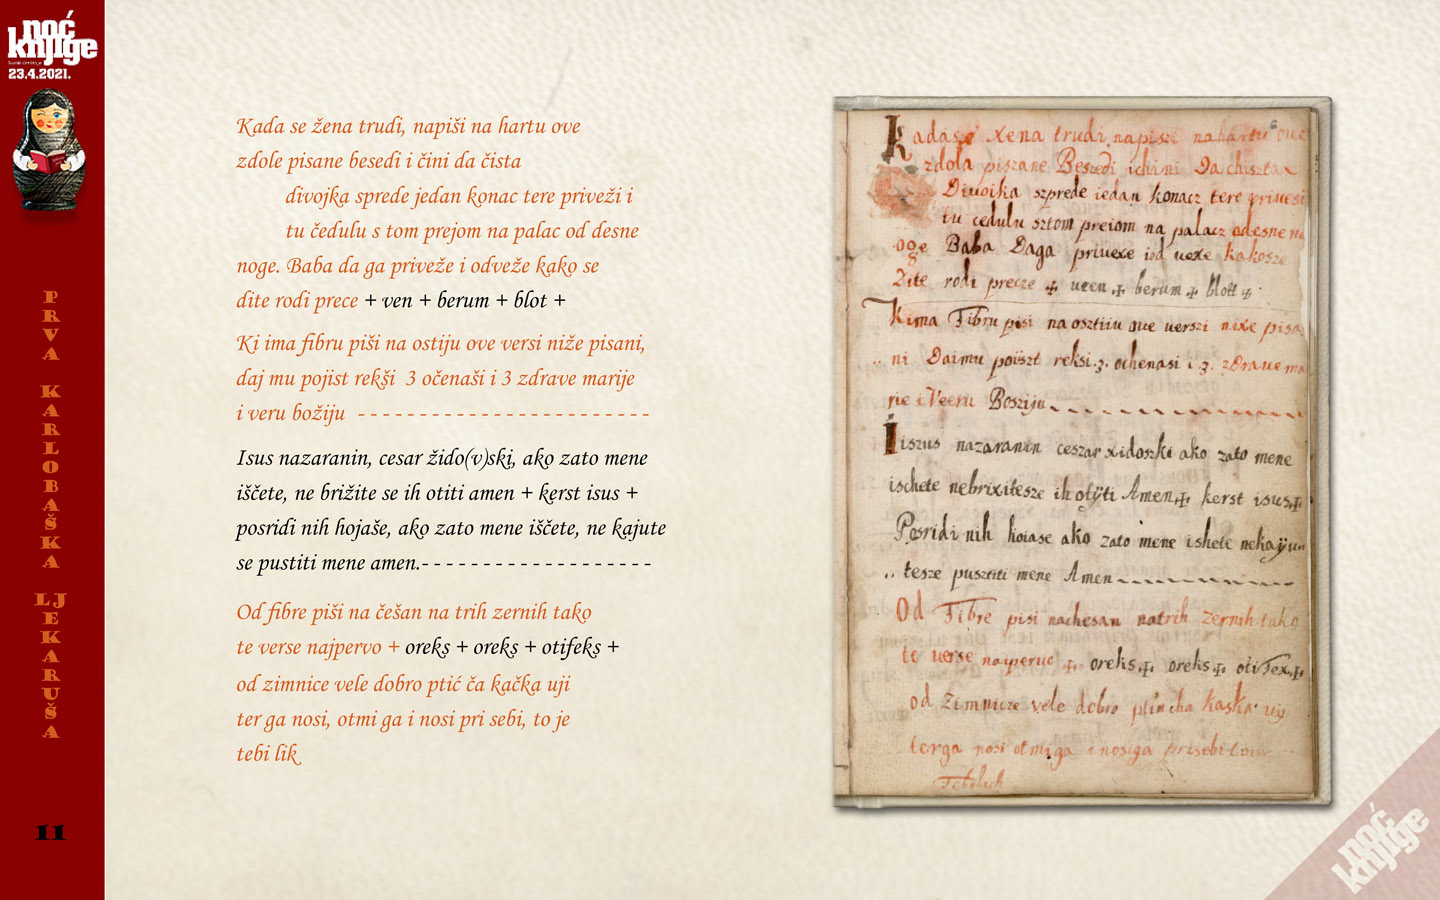 noć
knjige
23.4.2021.
PRVA KARLOBAŠKA LJEKARUŠA
11
Kada se žena trudi, napiši na hartu ove
zdole pisane besedi i čini da čista
divojka sprede jedan konac tere priveži i
tu čedulu s tom prejom na palac od desne
noge. Baba da ga priveže i odveže kako se
dite rodi prece + ven + berum + blot +
Ki ima fibru piši na ostiju ove versi niže pisani,
daj mu pojist rekši 3 očenaši i 3 zdrave marije
i veru božiju - - - - - - - - - - - - - - - - - - - - - - - -
Isus nazaranin, cesar žido(v)ski, ako zato mene
iščete, ne brižite se ih otiti amen + kerst isus +
posridi nih hojaše, ako zato mene iščete, ne kajute
se pustiti mene amen.- - - - - - - - - - - - - - - - - - -
Od fibre piši na češan na trih zernih tako
te verse najpervo + oreks + oreks + otifeks +
od zimnice vele dobro ptić ča kačka uji
ter ga nosi, otmi ga i nosi pri sebi, to je
tebi lik
6
Kadase xena trudi napiszi nahartu oue
zdola piszane Beszedi ichini Da chiszta
Diuoika szprede iedan konacz tere priuesi
tu cedulu sztom preiom na palacz odesne no
oge Baba Daga priuexe iod uexe kakosze
Dite rodi precze + uen + berum + blott +
Kima Fibru pisi na osztiiu oue uerszi nixe pisa
ni Daimu poiszt reksi .3. ochenasi i .3. zdraue ma
rie i Veeru Bosziju
Iiszus nazaranin ceszar xidoszki ako zato mene
ischete nebrixitesze ih otÿti Amen + kerst isus +
Posridi nih hoiase ako zato mene ishete nekaÿu
tesze pusztiti mene Amen
Od Fibre pisi nachesan natrih zernih tako
te uerse naiperuo + oreks + oreks + otifex +
od zimnicze vele dobro cha kaska uy
terga nosi otmiga i nosiga prisebi
Tebilich
noć
knjige